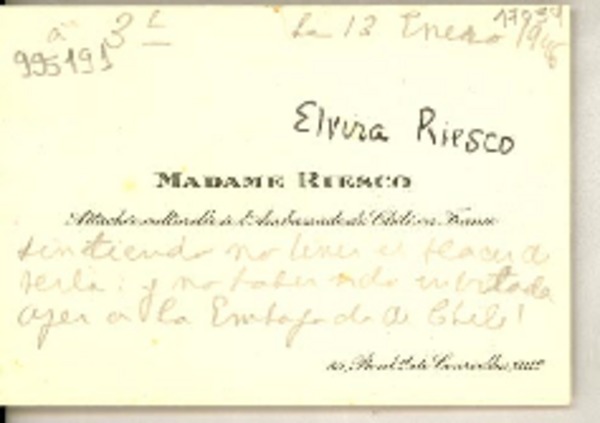 a 3 L La 13 Enero 1946
995191
Elvira Riesco
MADAME RIESCO
Attachée culturelle à l'Ambassade du Chili en France
sintiendo no tener el placer de
verla: y no haber sido invitada
ayer a la Embajada de Chile!